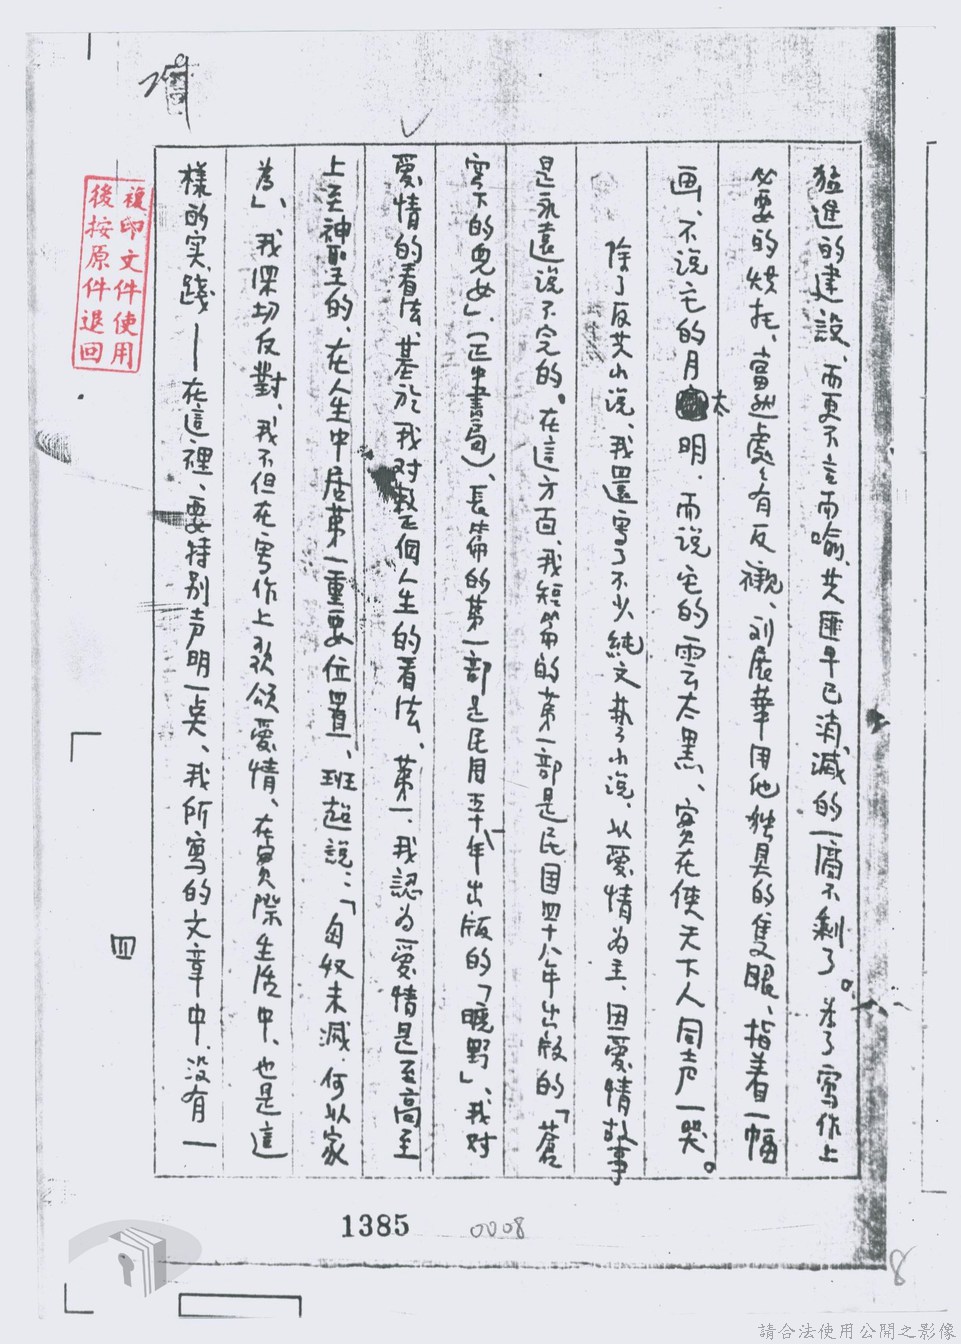 猛進的建設、而更不言而喻、共匪早已消滅的一個不剩了。為了寫作上
必要的烘托、當然處處有反襯、刘展華用他独具的隻眼、指着一幅
画、不说它的月太明、而说它的雲太黑、實在使天下人同声一哭。
除了反共小说、我還寫了不少純文藝小说、以爱情为主、因爱情故事
是永遠说不完的。在這方面、我短篇的第一部是民國四十八年出版的「蒼
穹下的兒女」、(正中書局)、長篇的第一部是民國五十八年出版的「曠野」、我对
爱情的看法、基於我对整個人生的看法、第一、我認为爱情是至高至
上至神聖的、在人生中居第一重要位置、班超説:「匈奴未滅、何以家
為」、我深切反對、我不但在寫作上歌颂爱情、在實際生活中、也是這
樣的実踐—在這裡、要特别声明一点、我所寫的文章中、没有一
複印文件使用
後按原件退回
四
1385
0008
8
請合法使用公開之影像